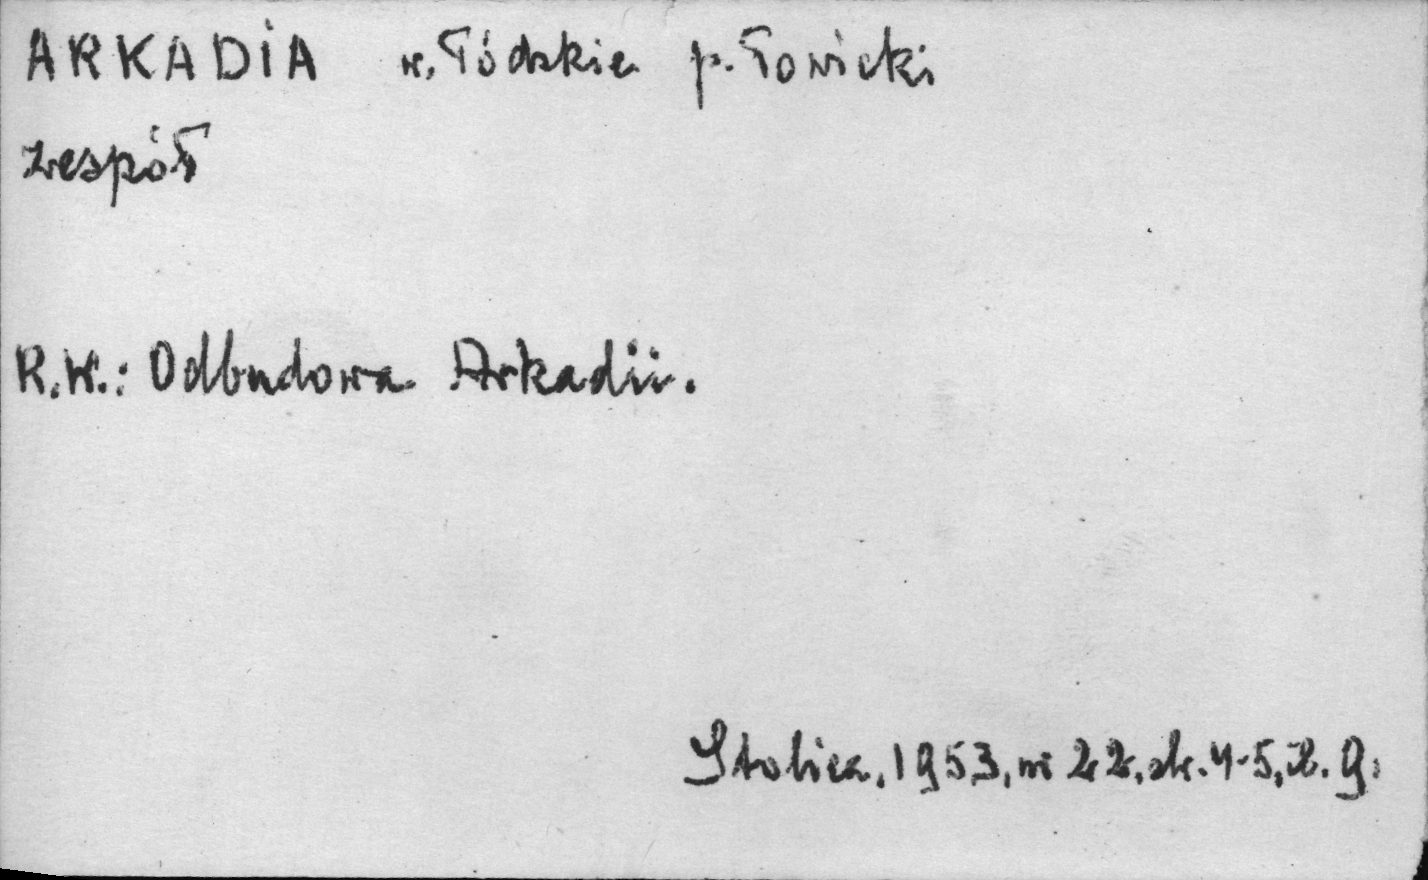 ARKADIA w. Łódzkie p. Łowicki
zespół
R.K.: Odbudowa Arkadii.
Stolica, 1953, nr 22, str. 4-5, il. 9.